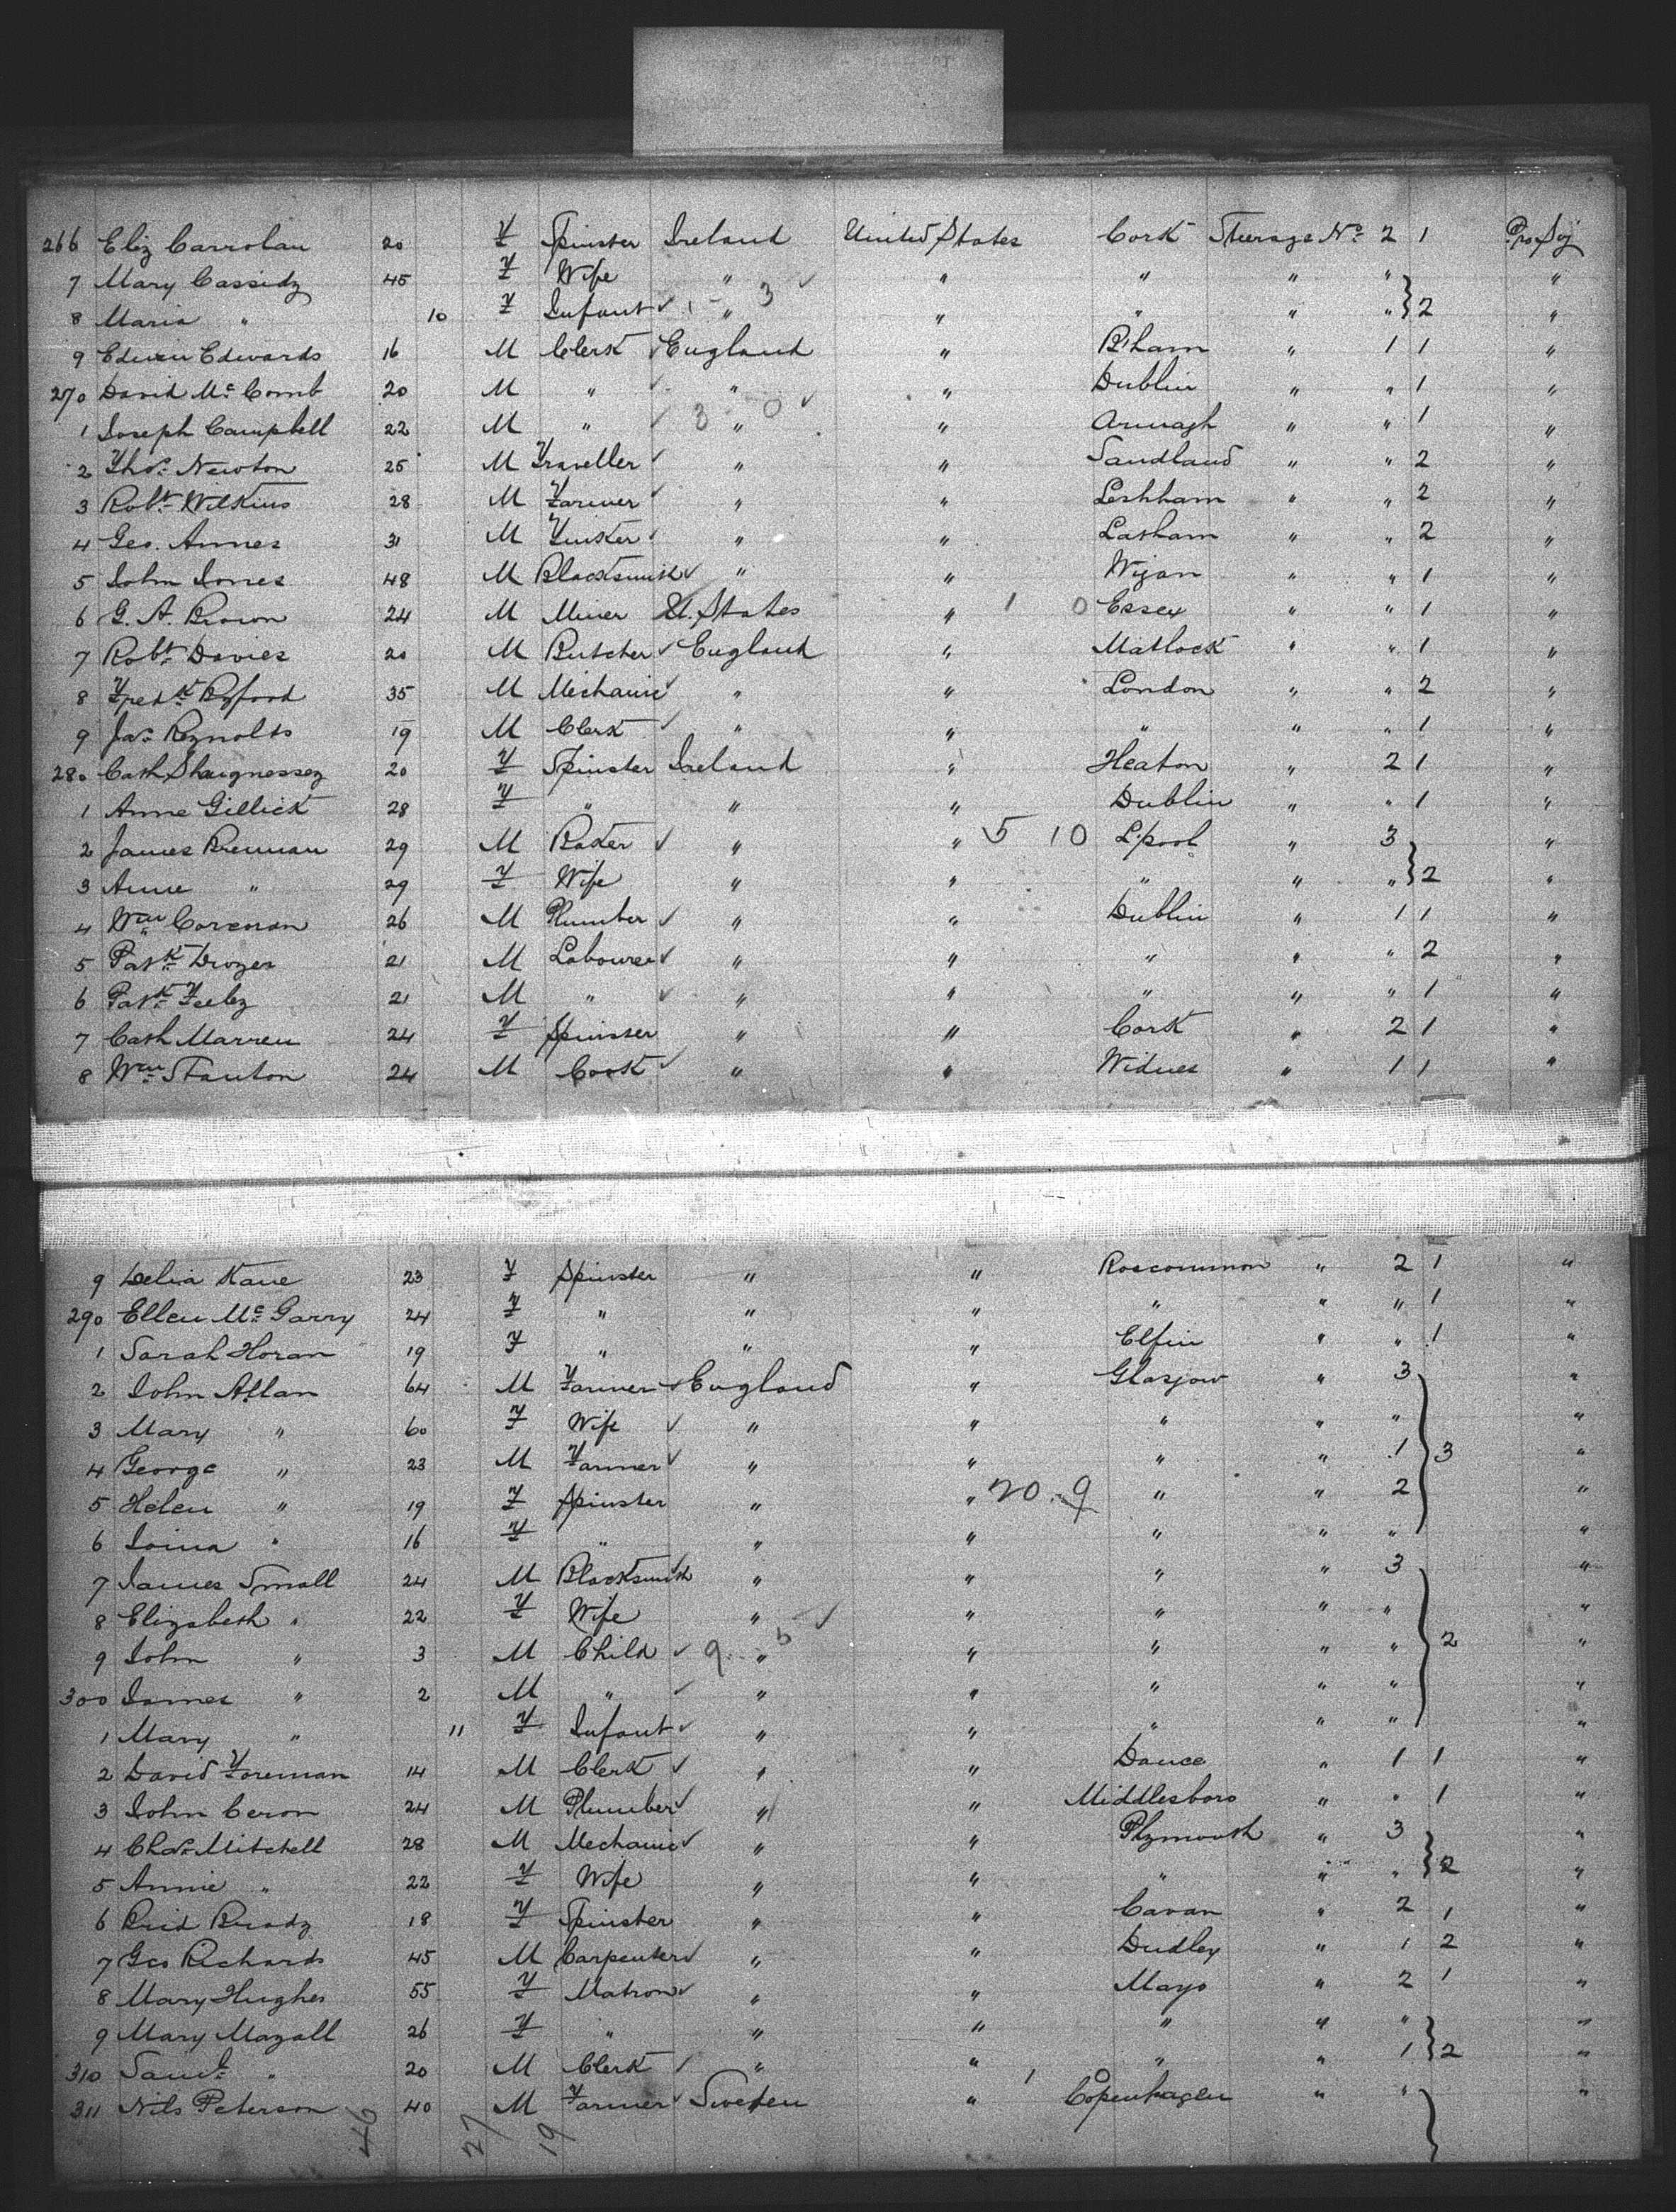 266 Eliz Carrolan 20 F Spinster Ireland United States Cork Steerage No. 2 1 Pro Soj
7 Mary Cassidy 45 F Wife " " " " " "
8 Maria " 10 F Infant " " " " " 2 "
9 Edwin Edwards 16 M Clerk England " B'ham " 1 1 "
270 David McComb 20 M " " " Dublin " " 1 "
1 Joseph Campbell 22 M " 3 " 0 " Armagh " " 1 "
2 Thos. Newton 25 M Traveller " " Sandland " " 2 "
3 Robt. Wilkins 28 M Farmer " " " " 2 "
4 Geo. Annes 31 M " " Latham " " 2 "
5 John Jones 48 M Blacksmith " " Wigan " " 1 "
6 G. A. Brown 24 M Miner U. States " 1 0 Essex " " 1 "
7 Robt. Davies 20 M Butcher England " Matlock " " 1 "
8 Fredk. Byford 35 M Mechanic " " London " " 2 "
9 Jas. Reynolds 19 M Clerk " " " " " 1 "
280 Cath Shaugnessey 20 F Spinster Ireland " Heaton " 2 1 "
1 Anne Gillick 28 F " " " Dublin " " 1 "
2 James Brennan 29 M Baker " " 5 10 L'pool " 3 "
3 Anne " 29 F Wife " " " " " 2 "
4 Wm. Corcoran 26 M Plumber " " Dublin " 1 1 "
5 Patk. Dwyer 21 M Labourer " " " " " 2 "
6 Patk. Feeley 21 M " " " " " " 1 "
7 Cath Marren 24 F Spinster " " Cork " 2 1 "
8 Wm. Stanton 24 M Cook " " Widnes " 1 1 "
9 Delia Kane 23 F Spinster " " Roscommon " 2 1 "
290 Ellen McGarry 24 F " " " " " " 1 "
1 Sarah Horan 19 F " " " Elfin " " 1 "
2 John Allan 64 M Farmer England " Glasgow " 3 "
3 Mary " 60 F Wife " " " " " "
4 George " 23 M Farmer " " " " 1 3 "
5 Helen " 19 F Spinster " " 20 9 " " 2 "
6 " 16 F " " " " " " "
7 James Small 24 M Blacksmith " " " " 3 "
8 Elizabeth " 22 F Wife " " " " " "
9 John " 3 M Child 9 " 5 " " " " 2 "
300 James " 2 M " " " " " " "
1 Mary " 11 F Infant " " " " " "
2 David Foreman 14 M Clerk " " " 1 1 "
3 John Ceron 24 M Plumber " " Middlesboro " " 1 "
4 Chas. Mitchell 28 M Mechanic " " Plymouth " 3 "
5 Annie " 22 F Wife " " " " " 2 "
6 Brid Brady 18 F Spinster " " Cavan " 2 1 "
7 Geo Richards 45 M Carpenter " " Dudley " 1 2 "
8 Mary Hughes 55 F Matron " " Mayo " 2 1 "
9 Mary Magall 26 F " " " " " " "
310 Saml. " 20 M Clerk " " " " 1 2 "
311 Nils Peterson 40 M Farmer Sweden " 1 0 Copenhagen " " "
46 27 19